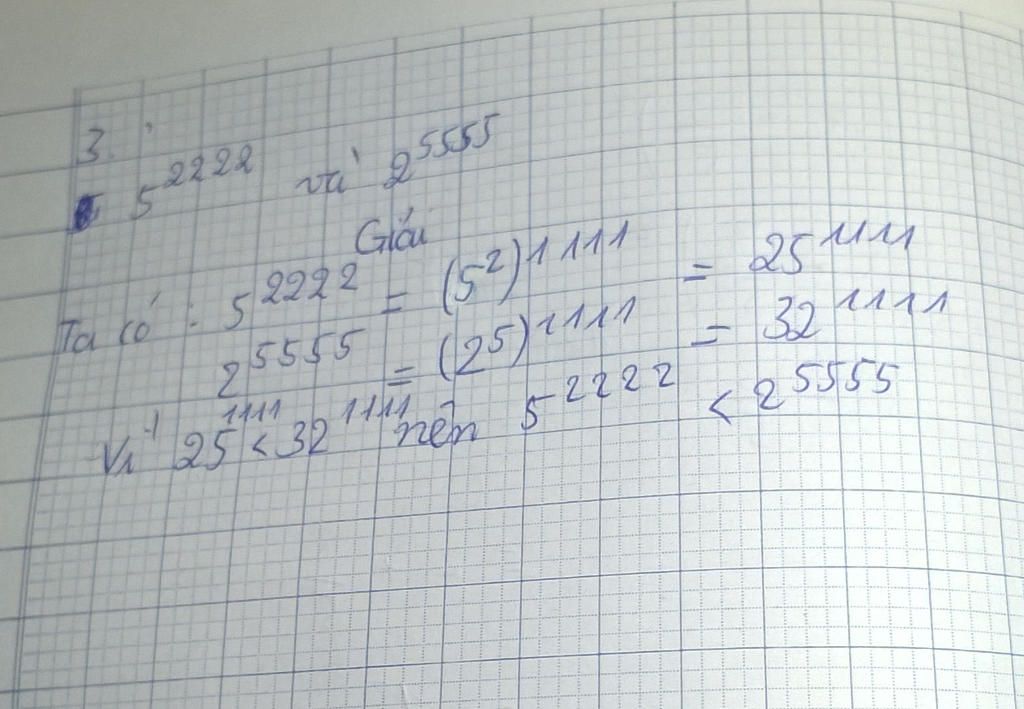 3.
5^2222 và 2^5555
Giải
Ta có : 5^2222 = (5^2)^1111 = 25^1111
2^5555 = (2^5)^1111 = 32^1111
Vì 25^1111 < 32^1111 nên 5^2222 < 2^5555